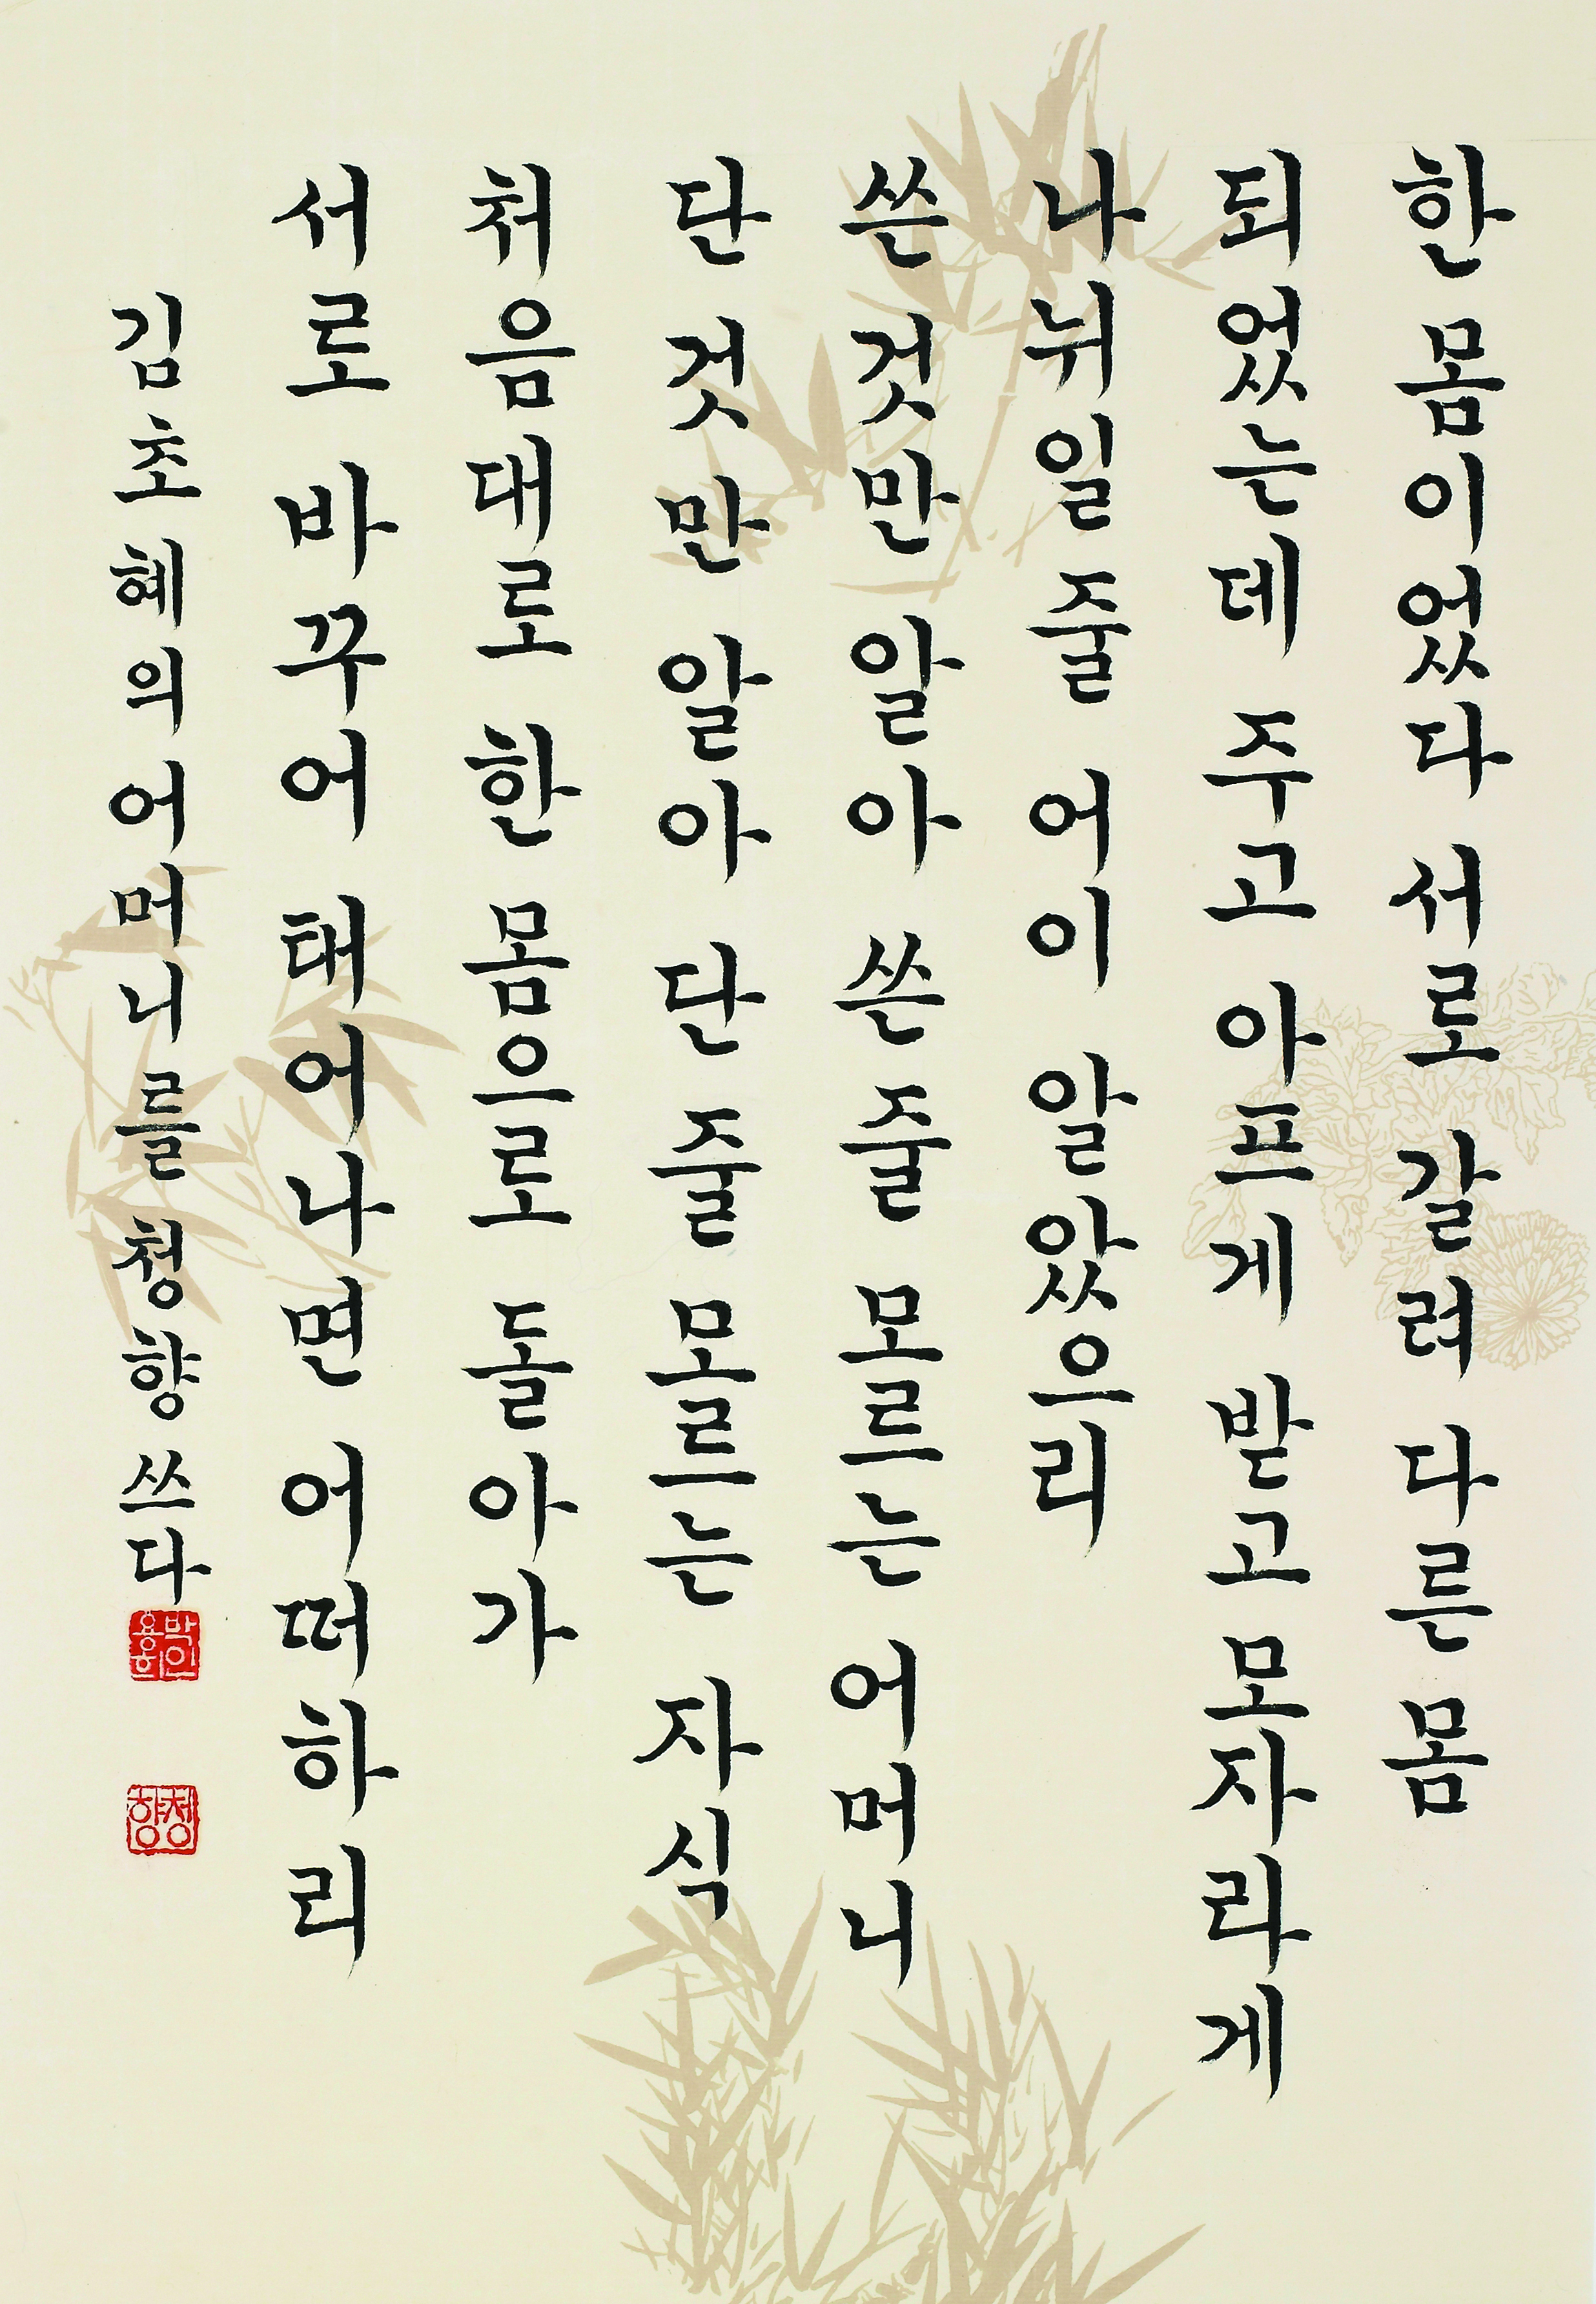 한 몸이었다 서로 갈려 다른 몸
되었는데 주고 아프게 받고 모자라게
나뉘일 줄 어이 알았으리
쓴 것만 알아 쓴 줄 모르는 어머니
단 것만 알아 단 줄 모르는 자식
처음대로 한 몸으로 돌아가
서로 바꾸어 태어나면 어떠하리
김초혜의 어머니를 청향 쓰다
청향